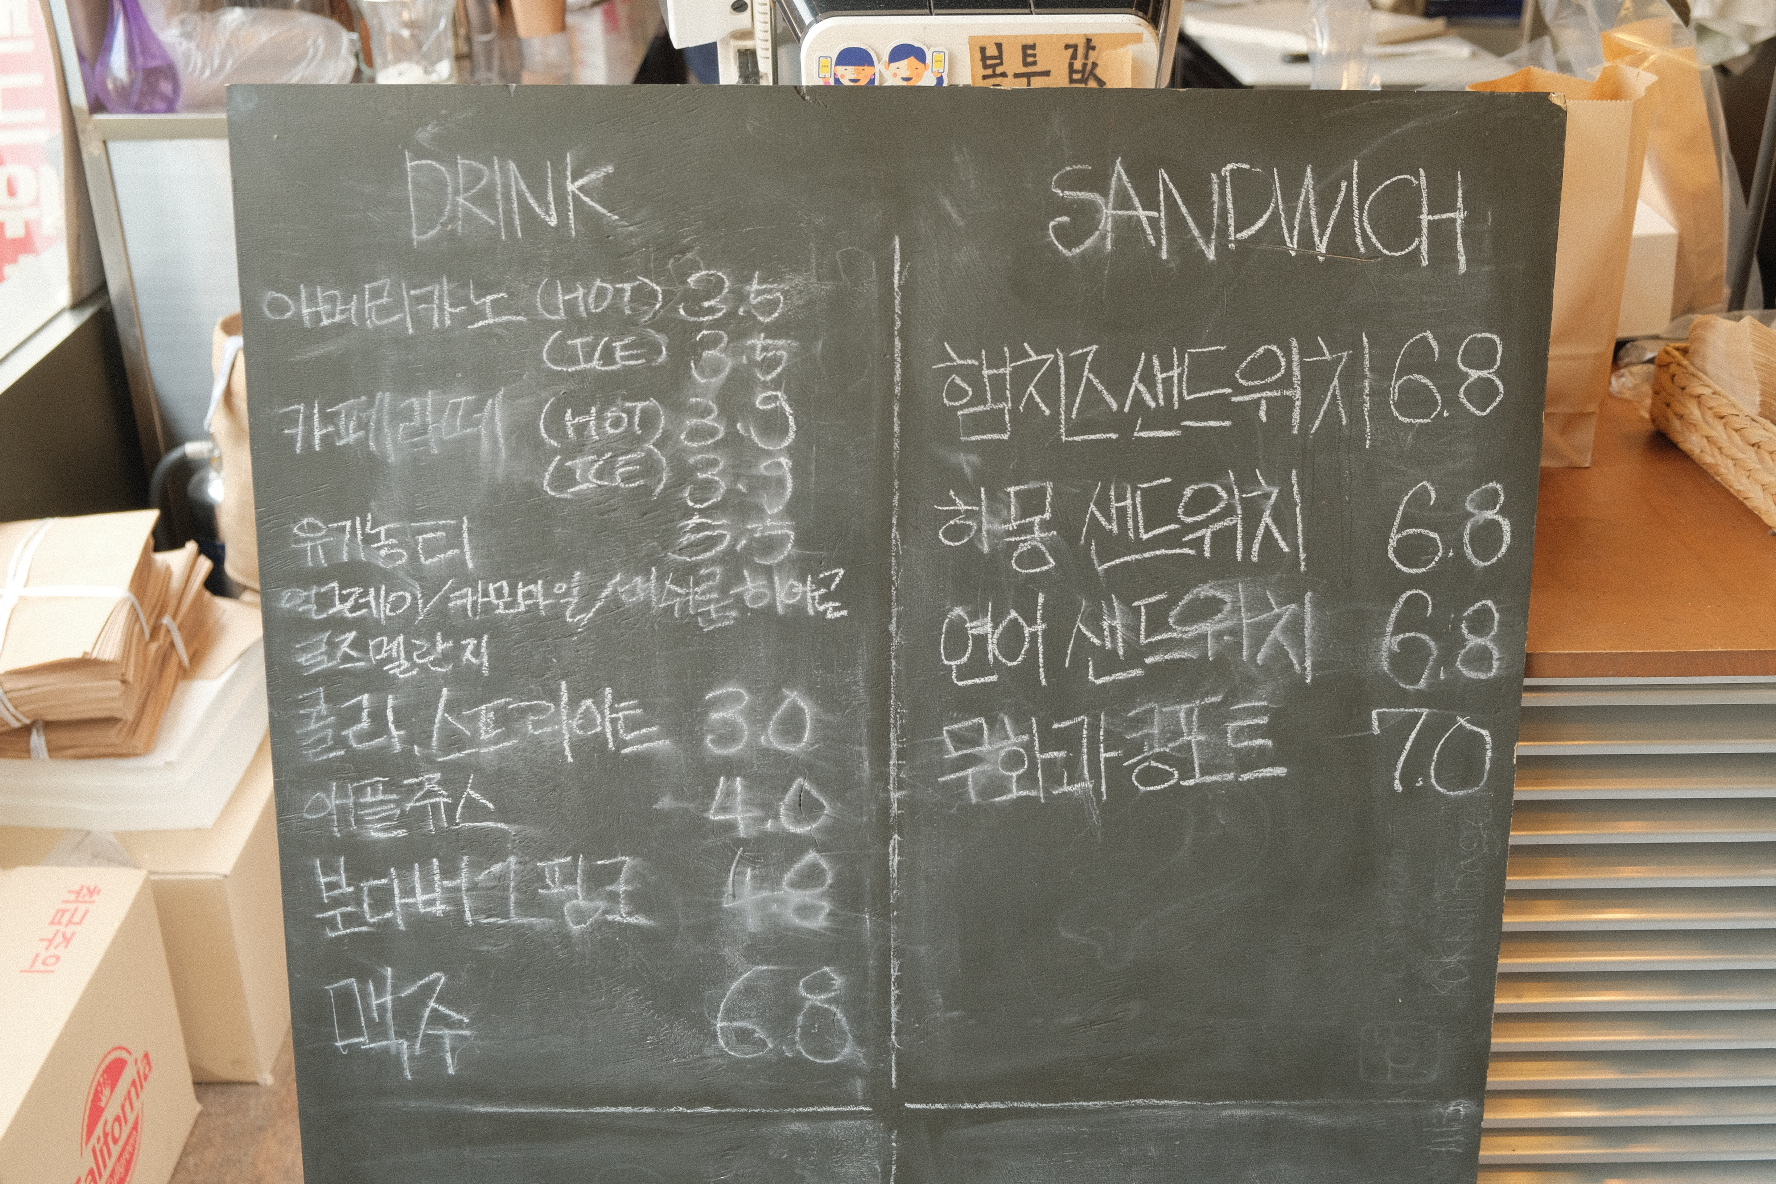 봉투 값
DRINK
아메리카노 (HOT) 3.5
(ICE) 3.5
카페라떼 (HOT) 3.9
(ICE) 3.9
유기농 티 5.5
얼그레이/카모마일/머쉬룬 히아로
로즈멜란지
콜라, 스프라이트 3.0
애플쥬스 4.0
분다버그 핑크 4.8
맥주 6.8
SANDWICH
햄치즈샌드위치 6.8
하몽 샌드위치 6.8
연어 샌드위치 6.8
무화과 콩포트 7.0
취급주의
California